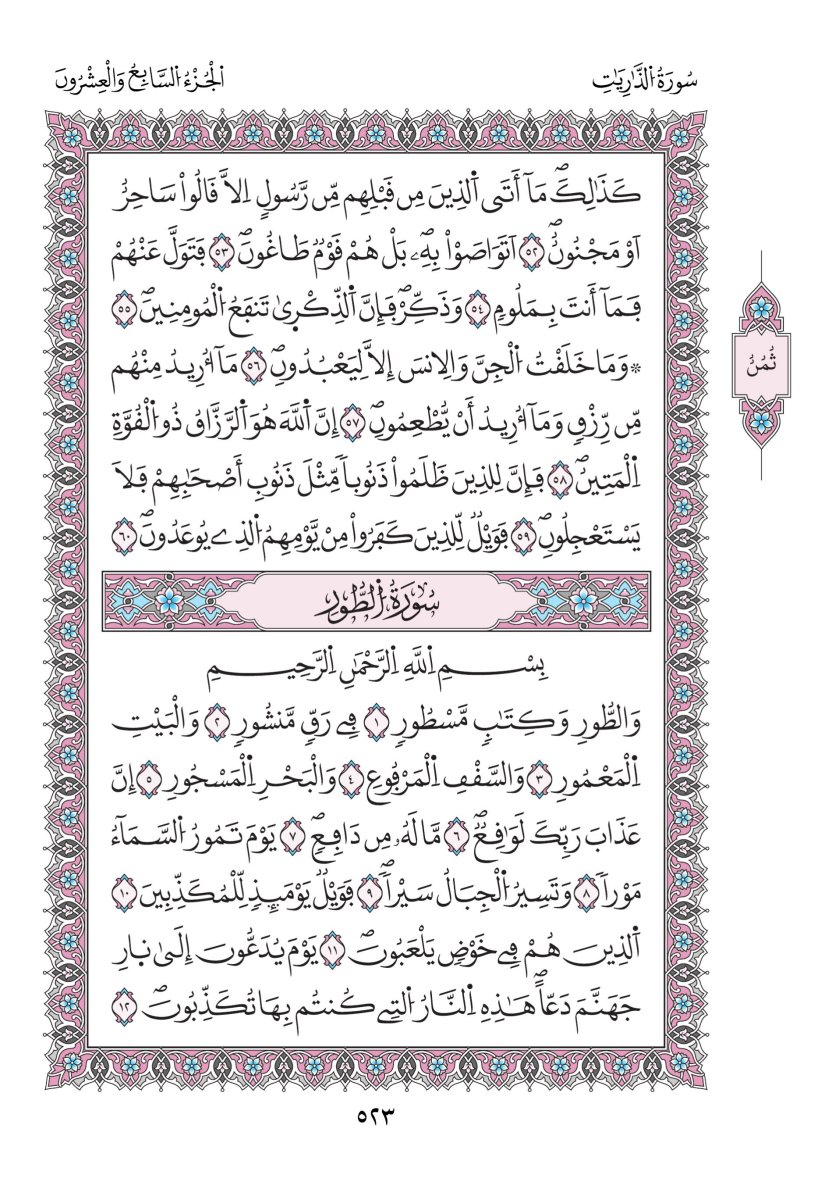 سُورَةُ الذَّارِيَٰتِ
الْجُزْءُ السَّابِعُ وَالْعِشْرُونَ
كَذَٰلِكَۖ مَآ أَتَى اَ۬لذِينَ مِن قَبْلِهِم مِّن رَّسُولٍ اِلَّا قَالُواْ سَاحِرٌ
اَوْ مَجْنُونٌۖ ٥٢ اَتَوَاصَوْاْ بِهِۦۖ بَلْ هُمْ قَوْمٞ طَاغُونَۖ ٥٣ فَتَوَلَّ عَنْهُمْ
فَمَآ أَنتَ بِمَلُومٖ ٥٤ وَذَكِّرْۖ فَإِنَّ اَ۬لذِّكْر۪يٰ تَنفَعُ اُ۬لْمُومِنِينَۖ ٥٥
۞ وَمَا خَلَقْتُ اُ۬لْجِنَّ وَالِانسَ إِلَّا لِيَعْبُدُونِۖ ٥٦ مَآ أُرِيدُ مِنْهُم
مِّن رِّزْقٖ وَمَآ أُرِيدُ أَنْ يُّطْعِمُونِۖ ٥٧ إِنَّ اَ۬للَّهَ هُوَ اَ۬لرَّزَّاقُ ذُو اُ۬لْقُوَّةِ
اِ۬لْمَتِينُۖ ٥٨ فَإِنَّ لِلذِينَ ظَلَمُواْ ذَنُوباٗ مِّثْلَ ذَنُوبِ أَصْحَٰبِهِمْ فَلَا
يَسْتَعْجِلُونِۖ ٥٩ فَوَيْلٞ لِّلذِينَ كَفَرُواْ مِنْ يَّوْمِهِمُ اُ۬لذِے يُوعَدُونَۖ ٦٠
ثُمُنُ
سُورَةُ اُ۬لطُّورِ
بِسْمِ اِ۬للَّهِ اِ۬لرَّحْمَٰنِ اِ۬لرَّحِيمِ
وَالطُّورِ وَكِتَٰبٖ مَّسْطُورٖ ١ فِے رَقّٖ مَّنشُورٖ ٢ وَالْبَيْتِ
اِ۬لْمَعْمُورِ ٣ وَالسَّقْفِ اِ۬لْمَرْفُوعِ ٤ وَالْبَحْرِ اِ۬لْمَسْجُورِ ٥ إِنَّ
عَذَابَ رَبِّكَ لَوَٰقِعٞۖ ٦ مَّا لَهُۥ مِن دَافِعٖۖ ٧ يَوْمَ تَمُورُ اُ۬لسَّمَآءُ
مَوْراٗ ٨ وَتَسِيرُ اُ۬لْجِبَالُ سَيْراٗۖ ٩ فَوَيْلٞ يَوْمَئِذٖ لِّلْمُكَذِّبِينَ ١٠
اَ۬لذِينَ هُمْ فِے خَوْضٖ يَلْعَبُونَۖ ١١ يَوْمَ يُدَعُّونَ إِلَىٰ نَارِ
جَهَنَّمَ دَعّاًۖ هَٰذِهِ اِ۬لنَّارُ اُ۬لتِے كُنتُم بِهَا تُكَذِّبُونَۖ ١٢
٥٢٣